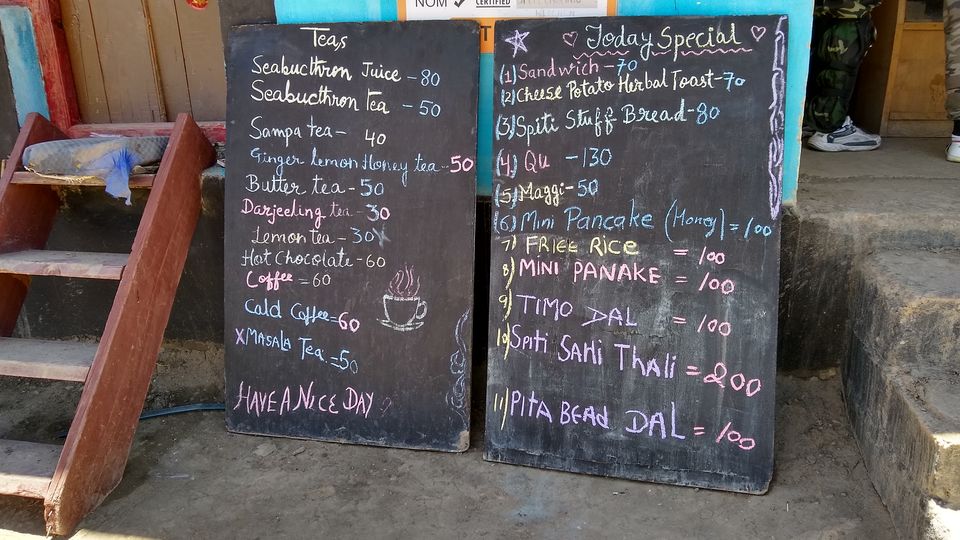 NOM ✓ CERTIFIED
T
Teas
Seabucthron Juice - 80
Seabucthron Tea - 50
Sampa tea - 40
Ginger lemon Honey tea - 50
Butter tea - 50
Darjeeling tea - 30
Lemon tea - 30
Hot Chocolate - 60
Coffee = 60
Cald Coffee = 60
X MASALA Tea. = 50
HAVE A NICE DAY
Today Special
(1) Sandwich - 70
(2) Cheese Potato Herbal Toast - 70
(3) Spiti Stuff Bread - 80
(4) Qu - 130
(5) Maggi - 50
(6) Mini Pancake (Honey) = 100
7) FRIEE RICE = 100
8) MINI PANAKE = 100
9) TIMO DAL = 100
10) Spiti SAHI Thali = 200
11) PITA BEAD DAL = 100